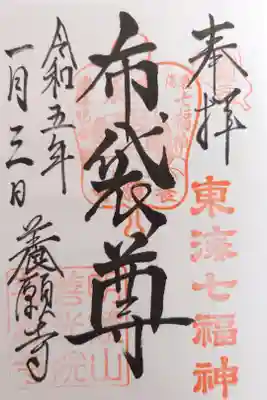 奉拝
東海七福神
布袋尊
令和五年
一月三日
養願寺